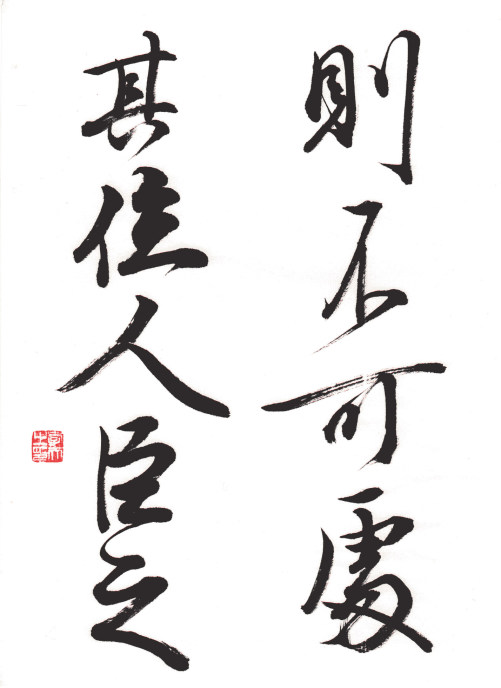 則不可處
其位人臣之